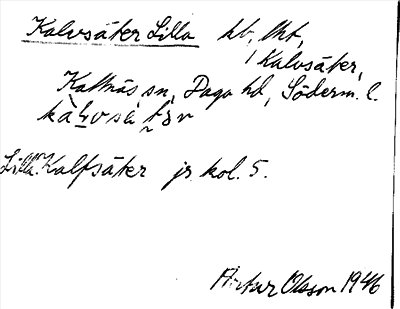 Kalvsäter Lilla hb, lht,
Kalvsäter,
Kattnäs sn, Daga hd, Söderm. l.
Lilla Kalfsäter jr. kol. 5.
Artur Olsson 1946